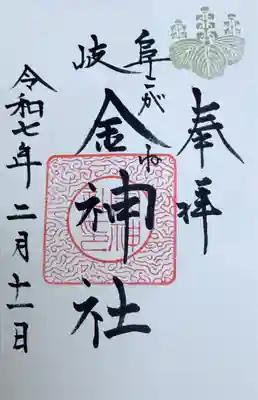 奉拝
岐阜
こがね
金神社
令和七年二月十一日